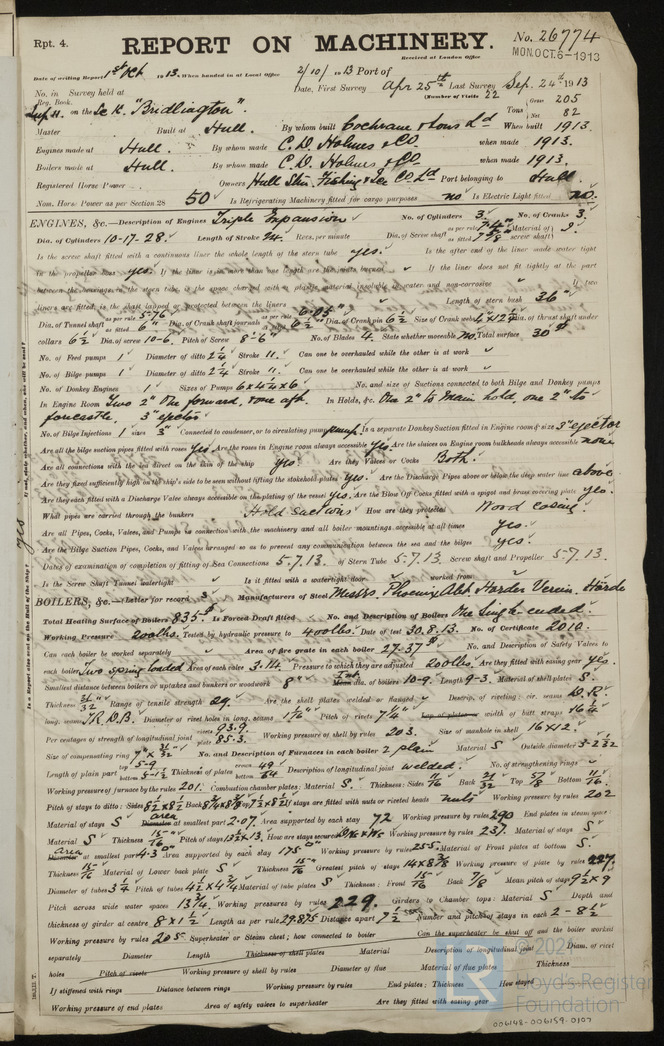 Rpt. 4.
REPORT ON MACHINERY.
No. 26774
Received at London Office
MON. OCT. 6 - 1913
Date of writing Report 1st Oct 1913. When handed in at Local Office 2/10/1913 Port of
No. in Survey held at Date, First Survey Apr 25th Last Survey Sep. 24th 1913
Reg. Book. (Number of Visits 22
on the Sc K. "Bridlington" Tons Gross 205
Net 82
Master Built at Hull. By whom built Cochrane & Sons Ld When built 1913.
Engines made at Hull. By whom made C. D. Holmes & Co when made 1913.
Boilers made at Hull. By whom made C. D. Holmes & Co when made 1913.
Registered Horse Power Owners Hull Stm. Fishing & Ice Co Ld Port belonging to Hull.
Nom. Horse Power as per Section 28 50 Is Refrigerating Machinery fitted for cargo purposes no Is Electric Light fitted no.
ENGINES, &c.—Description of Engines Triple Expansion No. of Cylinders 3. No. of Cranks 3.
Dia. of Cylinders 10-17-28. Length of Stroke 24. Revs. per minute Dia. of Screw shaft as per rule as fitted 7 3/8" Material of screw shaft
Is the screw shaft fitted with a continuous liner the whole length of the stern tube yes. Is the after end of the liner made water tight
in the propeller boss yes. If the liner is in more than one length are the joints burned If the liner does not fit tightly at the part
between the bearings in the stern tube, is the space charged with a plastic material insoluble in water and non-corrosive If two
liners are fitted, is the shaft lapped or protected between the liners Length of stern bush 36"
Dia. of Tunnel shaft as per rule 5.76 as fitted 6" Dia. of Crank shaft journals as per rule 6.05" as fitted 6 1/2" Dia. of Crank pin 6 1/2 Size of Crank webs Dia. of thrust shaft under
collars 6 1/2 Dia. of screw 10-6. Pitch of Screw 8-6" No. of Blades 4. State whether moveable no. Total surface 30
No. of Feed pumps 1 Diameter of ditto 2 1/4 Stroke 11. Can one be overhauled while the other is at work
No. of Bilge pumps 1 Diameter of ditto 2 1/4 Stroke 11. Can one be overhauled while the other is at work
No. of Donkey Engines 1 Sizes of Pumps 6 x 4 x 6 No. and size of Suctions connected to both Bilge and Donkey pumps
In Engine Room Two 2" One forward, & one aft. In Holds, &c. One 2" to main hold, one 2" to
forecastle. 3" ejector
No. of Bilge Injections 1 sizes 3" Connected to condenser, or to circulating pump pump. Is a separate Donkey Suction fitted in Engine room & size 3" ejector
Are all the bilge suction pipes fitted with roses yes. Are the roses in Engine room always accessible yes. Are the sluices on Engine room bulkheads always accessible none
Are all connections with the sea direct on the skin of the ship yes. Are they Valves or Cocks Both.
Are they fixed sufficiently high on the ship's side to be seen without lifting the stokehold plates yes. Are the Discharge Pipes above or below the deep water line above
Are they each fitted with a Discharge Valve always accessible on the plating of the vessel yes. Are the Blow Off Cocks fitted with a spigot and brass covering plate yes.
What pipes are carried through the bunkers Hold suctions How are they protected Wood casing.
Are all Pipes, Cocks, Valves, and Pumps in connection with the machinery and all boiler mountings accessible at all times yes.
Are the Bilge Suction Pipes, Cocks, and Valves arranged so as to prevent any communication between the sea and the bilges yes.
Dates of examination of completion of fitting of Sea Connections 5.7.13. of Stern Tube 5.7.13. Screw shaft and Propeller 5.7.13
Is the Screw Shaft Tunnel watertight Is it fitted with a watertight door worked from
BOILERS, &c.—(Letter for record S Manufacturers of Steel Messrs. Phoenix Abt. Hörder Verein, Hörde
Total Heating Surface of Boilers 835 Is Forced Draft fitted No. and Description of Boilers One Single ended.
Working Pressure 200 lbs. Tested by hydraulic pressure to 400 lbs. Date of test 30.8.13. No. of Certificate 2010.
Can each boiler be worked separately Area of fire grate in each boiler 27.37 No. and Description of Safety Valves to
each boiler Two spring loaded Area of each valve 3.14 Pressure to which they are adjusted 200 lbs. Are they fitted with easing gear yes.
Smallest distance between boilers or uptakes and bunkers or woodwork 8" Int dia. of boilers 10-9. Length 9-3. Material of shell plates S.
Thickness 31/32" Range of tensile strength 29. Are the shell plates welded or flanged Descrip. of riveting: cir. seams D.R.
long. seams T.R.D.B. Diameter of rivet holes in long. seams 1 1/16" Pitch of rivets 7 1/4 Lap of plates or width of butt straps 16 1/4
Per centages of strength of longitudinal joint rivets 93.9. plate 85.3. Working pressure of shell by rules 203. Size of manhole in shell 16 x 12.
Size of compensating ring 7 x 31/32 No. and Description of Furnaces in each boiler 2 plain Material S Outside diameter 3-2 1/32
Length of plain part top 5-9 bottom 5-1 1/2 Thickness of plates crown 49 bottom 64 Description of longitudinal joint welded. No. of strengthening rings
Working pressure of furnace by the rules 201. Combustion chamber plates: Material S. Thickness: Sides 11/16 Back 21/32 Top 5/8 Bottom 11/16
Pitch of stays to ditto: Sides 8 1/2 x 8 1/2 Back 8 3/4 x 8 3/8 Top 7 1/2 x 8 1/2 If stays are fitted with nuts or riveted heads nuts Working pressure by rules 202
Material of stays S area at smallest part 2.07. Area supported by each stay 72 Working pressure by rules 290 End plates in steam space:
Material S Thickness 15/16" Pitch of stays 13 1/2 x 13. How are stays secured DN & Ws Working pressure by rules 237. Material of stays S
area at smallest part 4.3 Area supported by each stay 175 Working pressure by rules 255. Material of Front plates at bottom S.
Thickness 15/16" Material of Lower back plate S Thickness 15/16" Greatest pitch of stays 14 x 8 3/8 Working pressure of plate by rules 227.
Diameter of tubes 3 1/4 Pitch of tubes 4 1/2 x 4 3/4 Material of tube plates S Thickness: Front 15/16" Back 7/8 Mean pitch of stays 9 1/2 x 9
Pitch across wide water spaces 13 3/4. Working pressures by rules 229. Girders to Chamber tops: Material S Depth and
thickness of girder at centre 8 x 1 1/2 Length as per rule 29.875 Distance apart 7 1/2 Number and pitch of stays in each 2 - 8 1/2
Working pressure by rules 205 Superheater or Steam chest; how connected to boiler Can the superheater be shut off and the boiler worked
separately Diameter Length Thickness of shell plates Material Description of longitudinal joint Diam. of rivet
holes Pitch of rivets Working pressure of shell by rules Diameter of flue Material of flue plates Thickness
If stiffened with rings Distance between rings Working pressure by rules End plates: Thickness How stayed
Working pressure of end plates Area of safety valves to superheater Are they fitted with easing gear
© 2021
Lloyd's Register
Foundation
006148-006159-0107